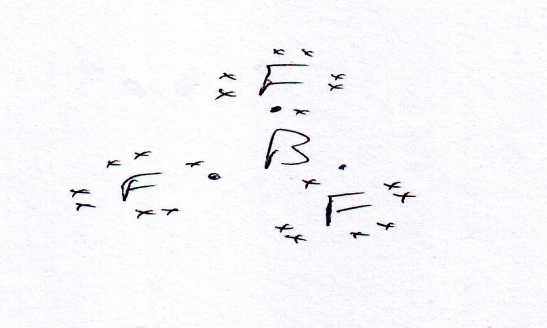 F
B
F F